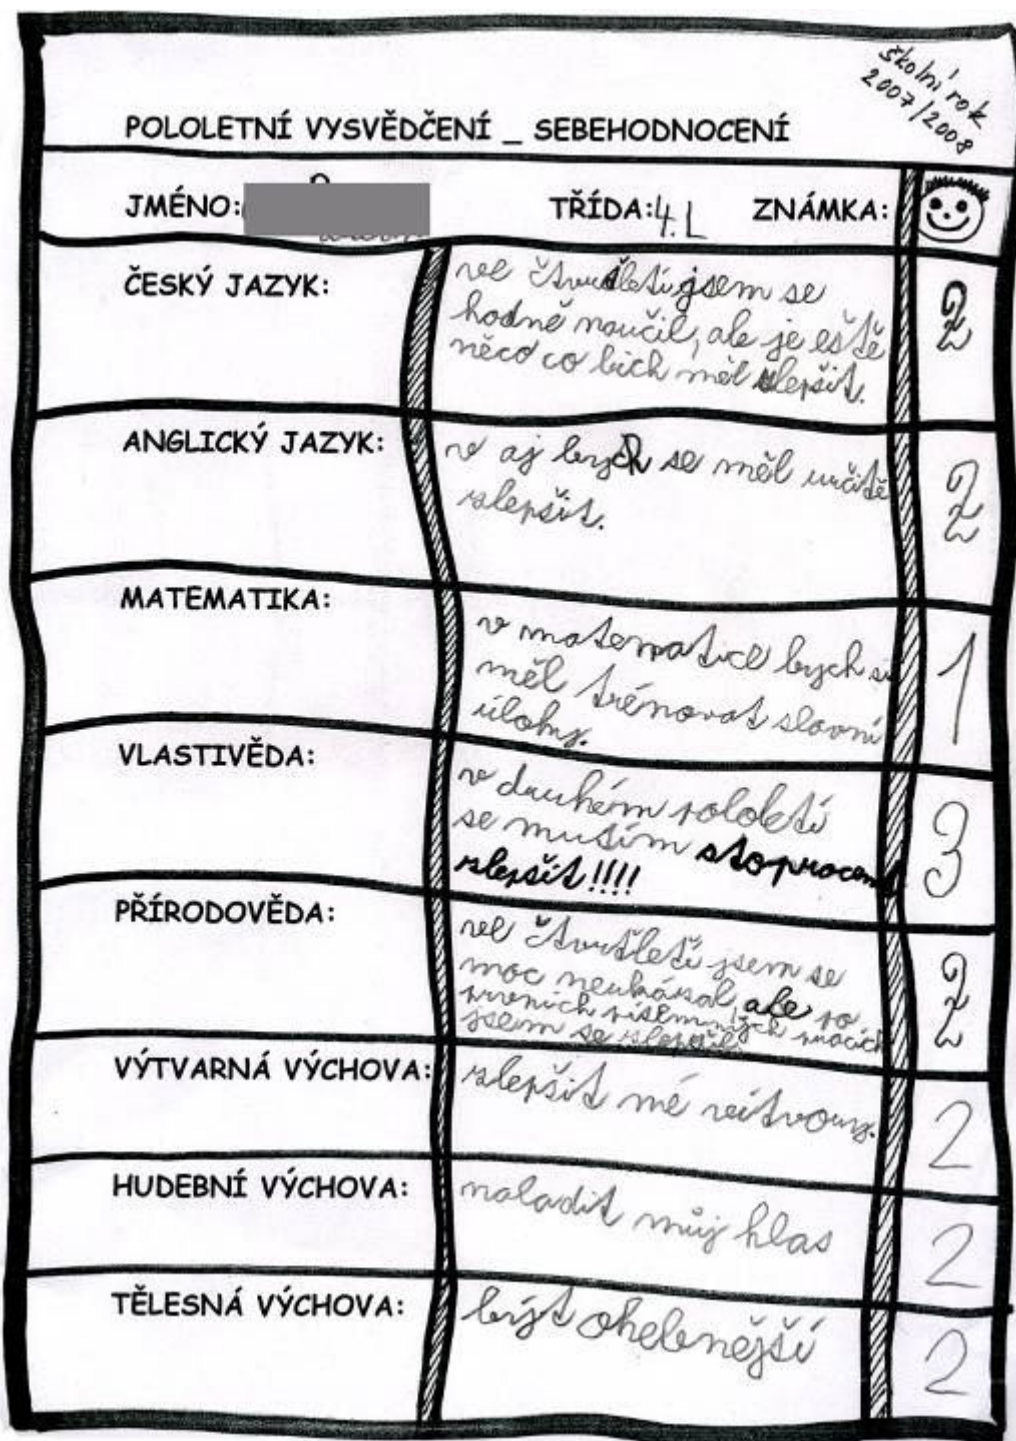 školní rok
2007/2008
POLOLETNÍ VYSVĚDČENÍ _ SEBEHODNOCENÍ
JMÉNO: TŘÍDA: 4.L ZNÁMKA:
ČESKÝ JAZYK: ve čtvrtletí jsem se 2
hodně naučil, ale je eště
něco co bich měl zlepšit.
ANGLICKÝ JAZYK: v aj bych se měl určitě 2
zlepšit.
MATEMATIKA: v matematice bych si 1
měl trénovat slovní
úlohy.
VLASTIVĚDA: v druhém pololetí 3
se musím stoprocent
zlepšit!!!!
PŘÍRODOVĚDA: ve čtvrtletí jsem se 2
moc neukázal, ale po
prvních písemných pracích
jsem se zlepšil.
VÝTVARNÁ VÝCHOVA: zlepšit mé veítvory. 2
HUDEBNÍ VÝCHOVA: naladit můj hlas 2
TĚLESNÁ VÝCHOVA: být ohebnější 2